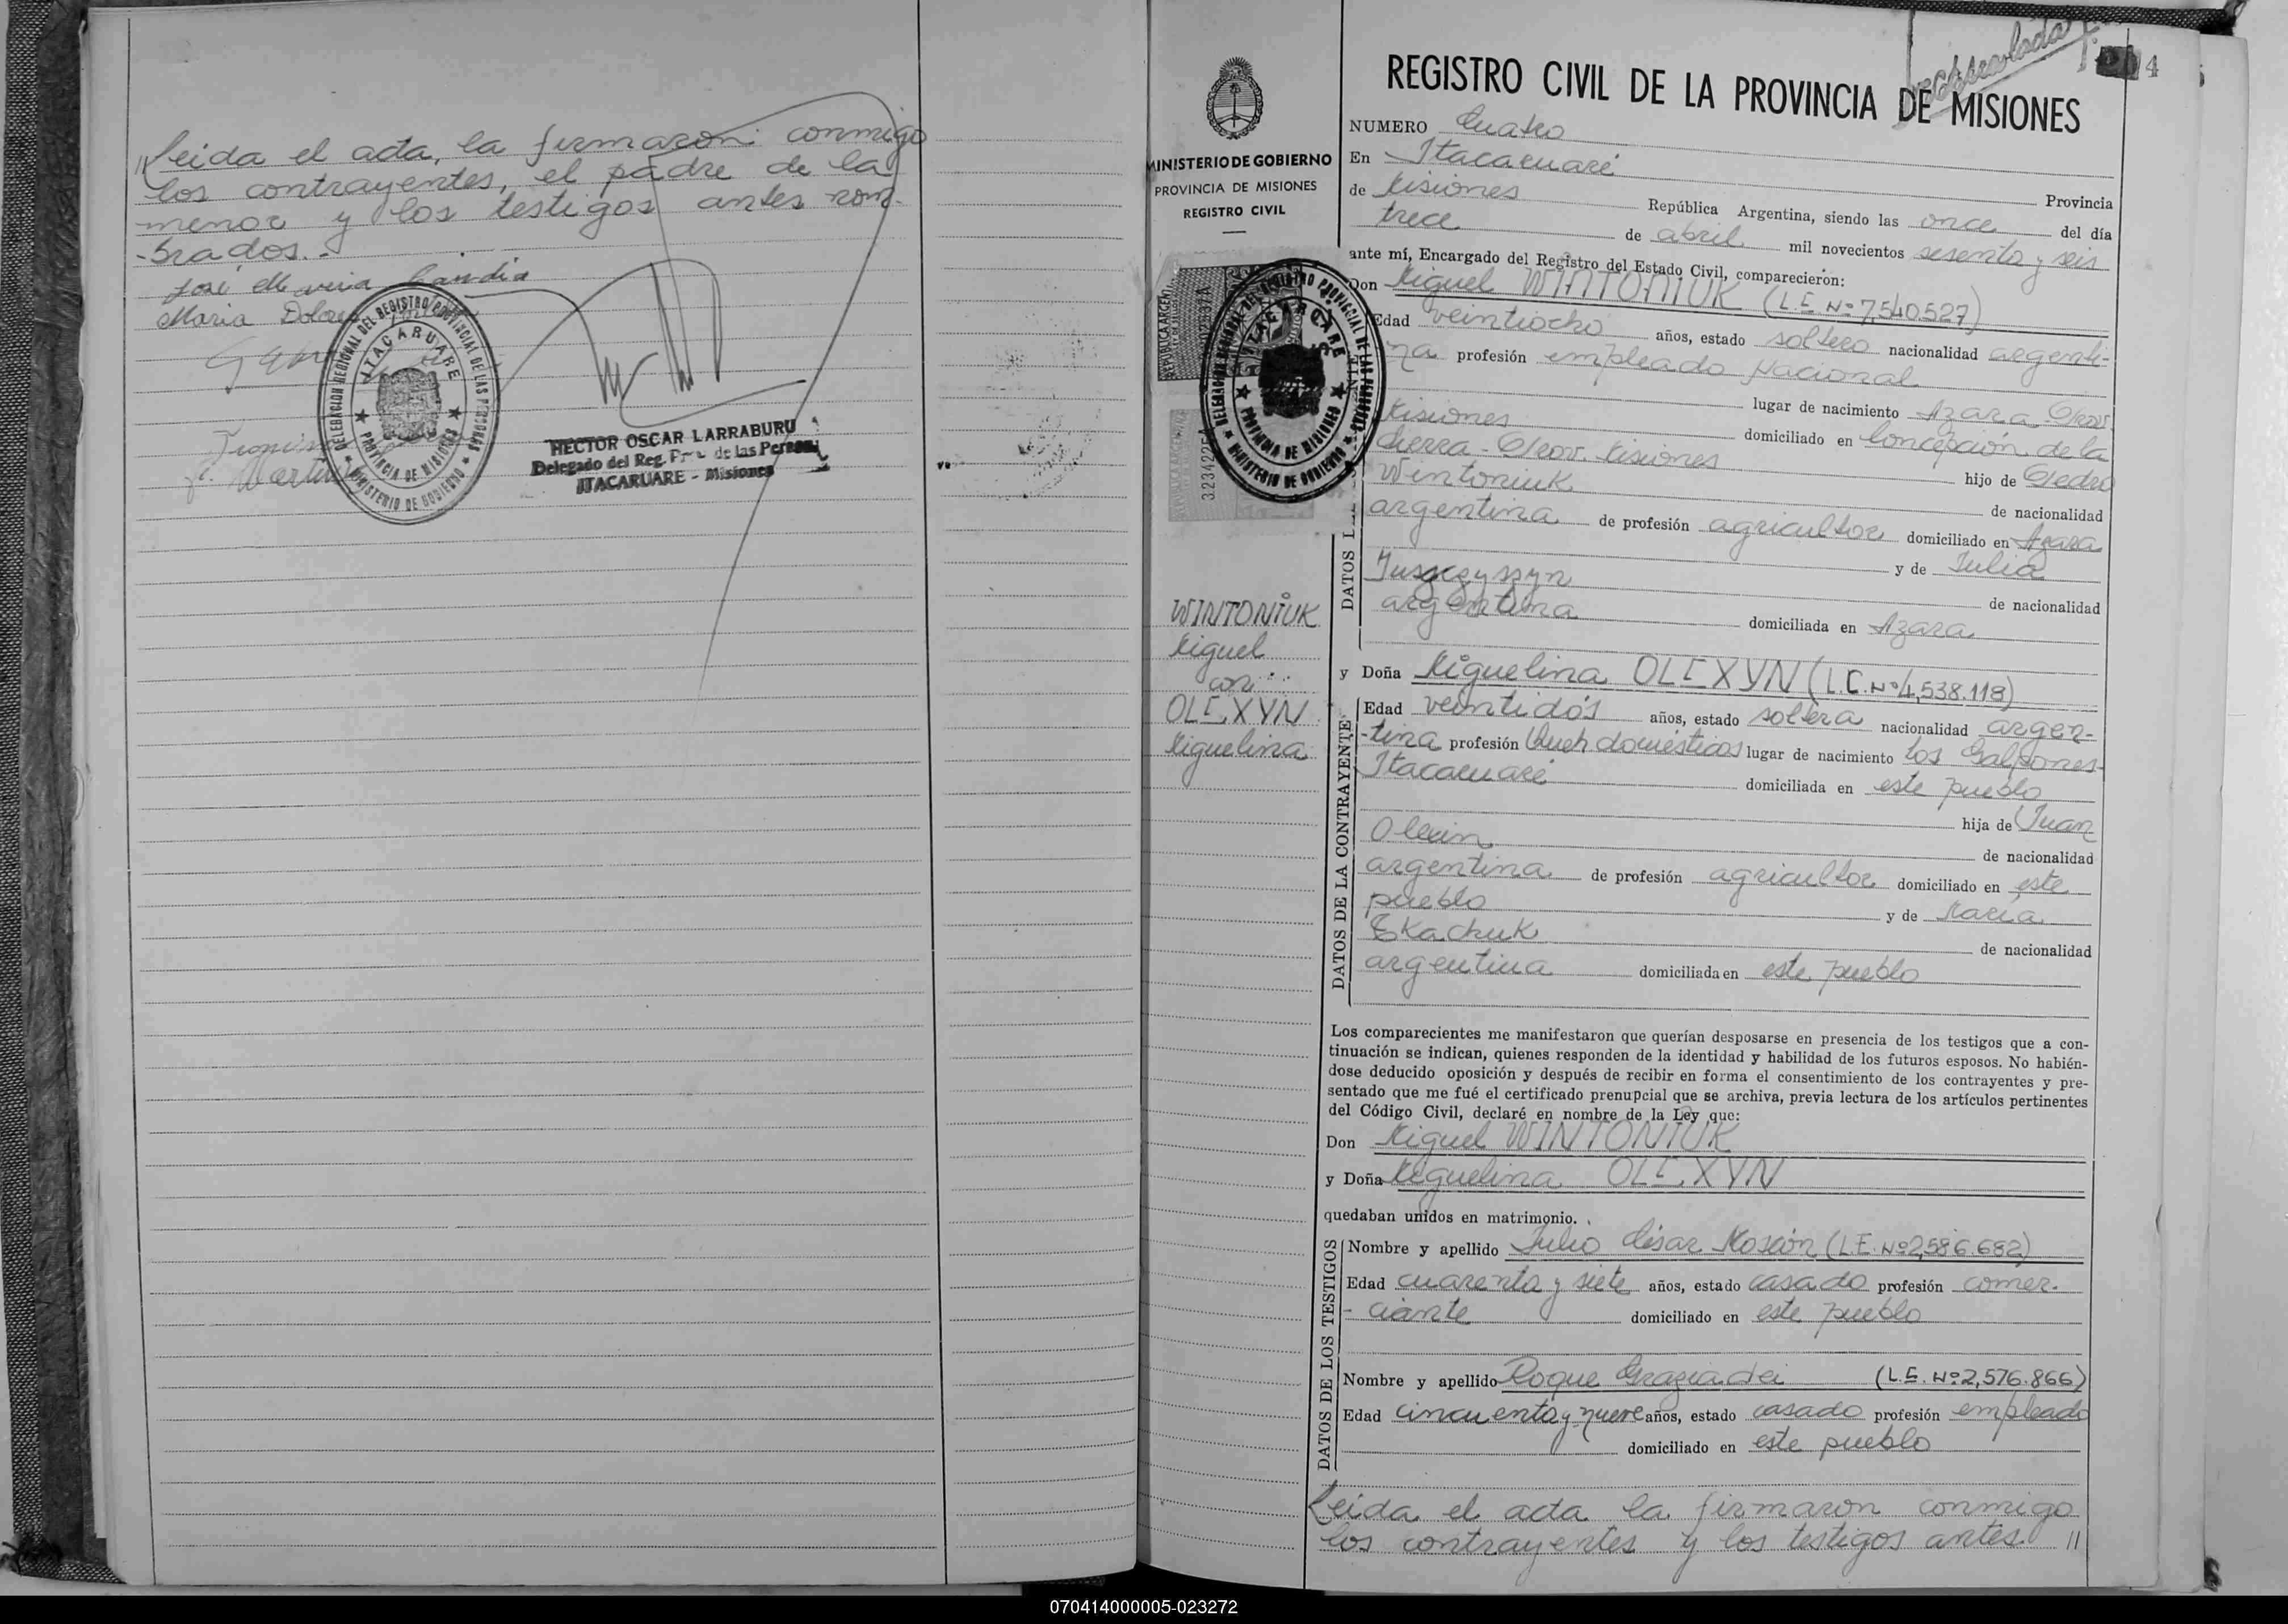 //Leida el acta, la firmaron conmigo
los contrayentes, el padre de la
menor y los testigos antes nom-
-brados.-
José Maria Candia
Maria Dolores
HECTOR OSCAR LARRABURU
Delegado del Reg. de las Person
ITACARUARE - Misiones
DELEGACION REGIONAL DEL REGISTRO PROVINCIAL DE LAS PERSONAS
ITACARUARE
PROVINCIA DE MISIONES
MINISTERIO DE GOBIERNO
4
REGISTRO CIVIL DE LA PROVINCIA DE MISIONES
MINISTERIO DE GOBIERNO
PROVINCIA DE MISIONES
REGISTRO CIVIL
WINTONIUK
Miguel
con
OLEXYN
Miguelina
NUMERO Cuatro
En Itacaruaré Provincia
de Misiones República Argentina, siendo las once del día
trece de abril mil novecientos sesenta y seis
ante mí, Encargado del Registro del Estado Civil, comparecieron:
Don Miguel WINTONIUK (L.E. Nº 7,540.527)
Edad veintiocho años, estado soltero nacionalidad argenti-
na profesión empleado Nacional
lugar de nacimiento Azara-Prov.
Misiones domiciliado en Concepción de la
Sierra-Prov. Misiones hijo de Pedro
Wintoniuk de nacionalidad
argentina de profesión agricultor domiciliado en Azara
y de Julia
de nacionalidad
argentina domiciliada en Azara
y Doña Miguelina OLEXYN (L.C. Nº 4,538.118)
DATOS DE LA CONTRAYENTE
Edad veintidós años, estado soltera nacionalidad argen-
-tina profesión Queh domésticos lugar de nacimiento Los Galpones-
Itacaruaré domiciliada en este pueblo
hija de Juan
Olexin de nacionalidad
argentina de profesión agricultor domiciliado en este
pueblo y de María
Tkachuk de nacionalidad
argentina domiciliada en este pueblo
Los comparecientes me manifestaron que querían desposarse en presencia de los testigos que a con-
tinuación se indican, quienes responden de la identidad y habilidad de los futuros esposos. No habién-
dose deducido oposición y después de recibir en forma el consentimiento de los contrayentes y pre-
sentado que me fué el certificado prenupcial que se archiva, previa lectura de los artículos pertinentes
del Código Civil, declaré en nombre de la Ley que:
Don Miguel WINTONIUK
y Doña Miguelina OLEXYN
quedaban unidos en matrimonio.
DATOS DE LOS TESTIGOS
Nombre y apellido Julio César (L.E. Nº 2,586.682)
Edad cuarenta y siete años, estado casado profesión comer-
-ciante domiciliado en este pueblo
Nombre y apellido Roque Graziadei (L.E. Nº 2,576.866)
Edad cincuenta y nueve años, estado casado profesión empleado
domiciliado en este pueblo
Leida el acta la firmaron conmigo
los contrayentes y los testigos antes //
070414000005-023272